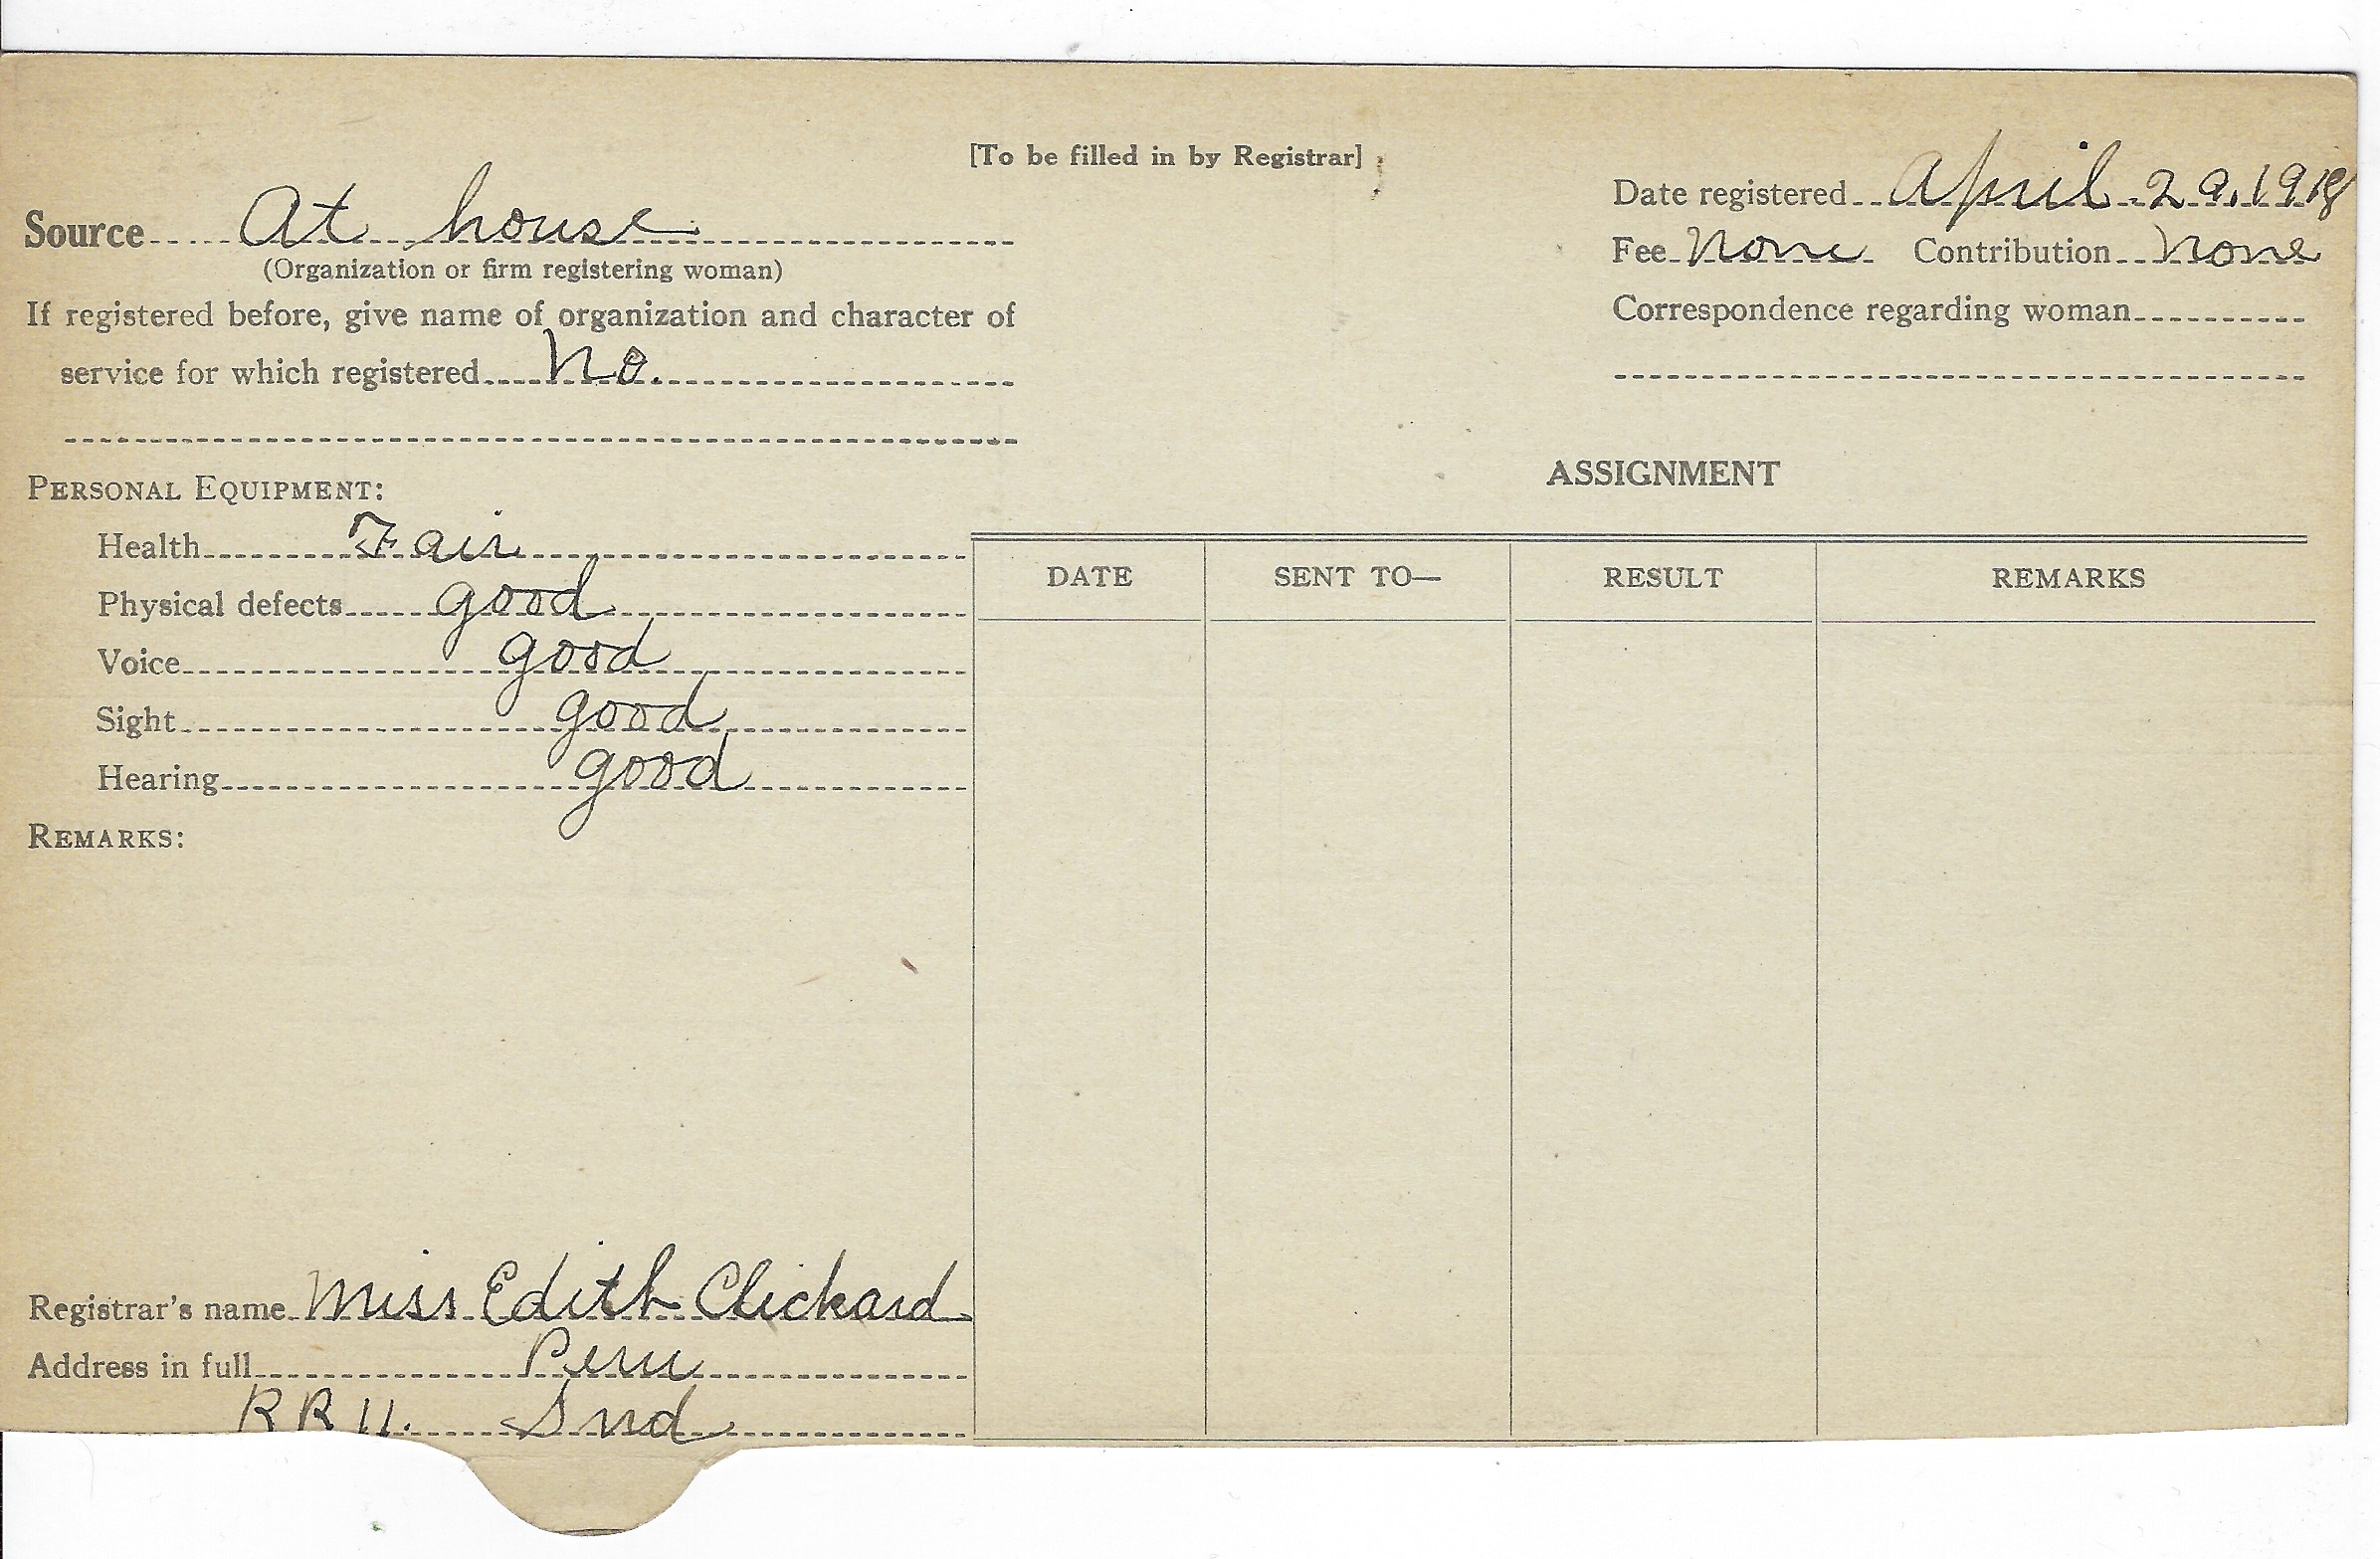 [To be filled in by Registrar]
Source At house
(Organization or firm registering woman)
If registered before, give name of organization and character of
service for which registered No.
Date registered April 29, 1918
Fee None Contribution None
Correspondence regarding woman
PERSONAL EQUIPMENT:
Health Fair
Physical defects good
Voice good
Sight good
Hearing good
REMARKS:
Registrar's name Miss Edith Clickard
Address in full Peru
RR 11. Ind
ASSIGNMENT
DATE SENT TO— RESULT REMARKS